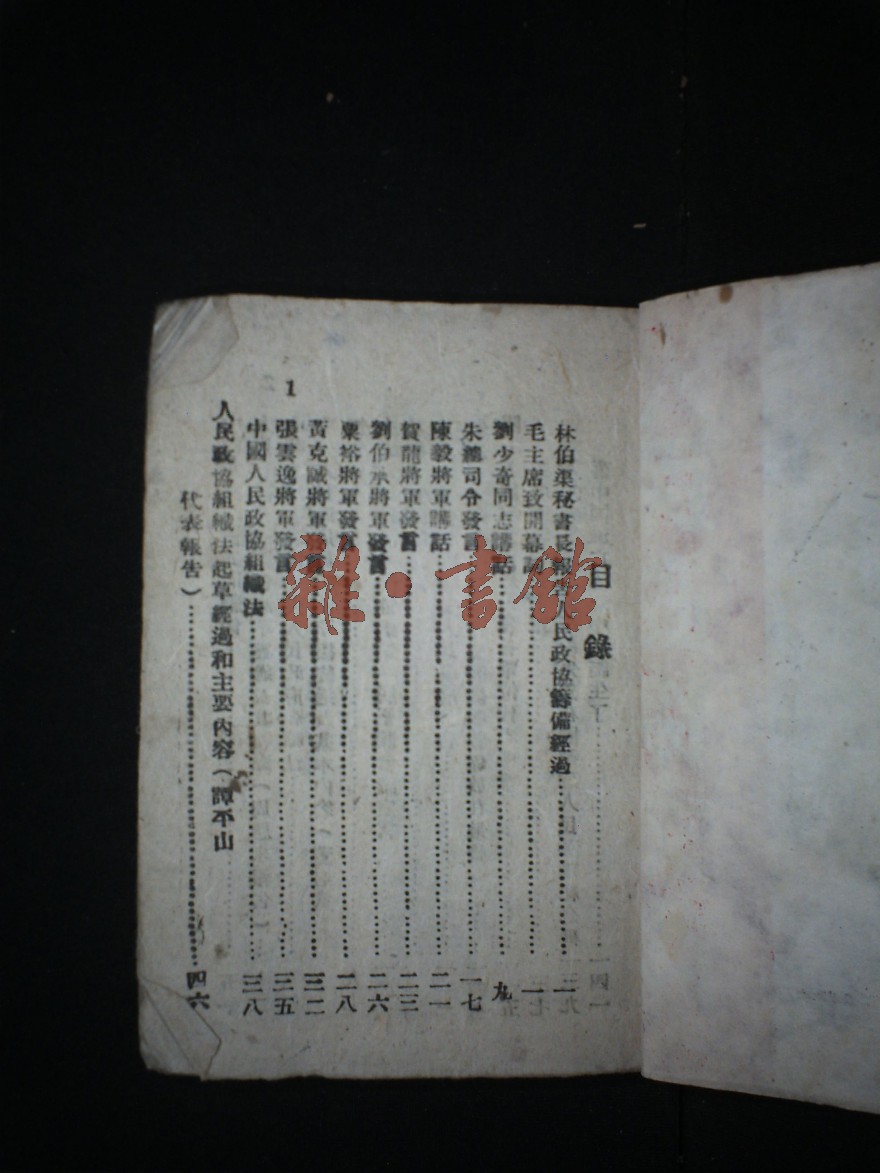 目錄
林伯渠秘書長報 人民政協籌備經過……一
毛主席致開幕詞……一
劉少奇同志講話……九
朱總司令發言……一七
陳毅將軍講話……二一
賀龍將軍發言……二三
劉伯承將軍發言……二六
粟裕將軍發言……二八
黃克誠將軍發言……三二
張雲逸將軍發言……三五
中國人民政協組織法……三八
人民政協組織法起草經過和主要內容(譚平山
代表報告)……四六
1
雜·書館